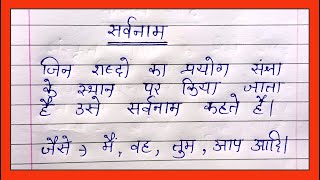 सर्वनाम
जिन शब्दो का प्रयोग संज्ञा
के स्थान पर किया जाता
है उसे सर्वनाम कहते हैं।
जैसे → मैं, वह, तुम, आप आदि।